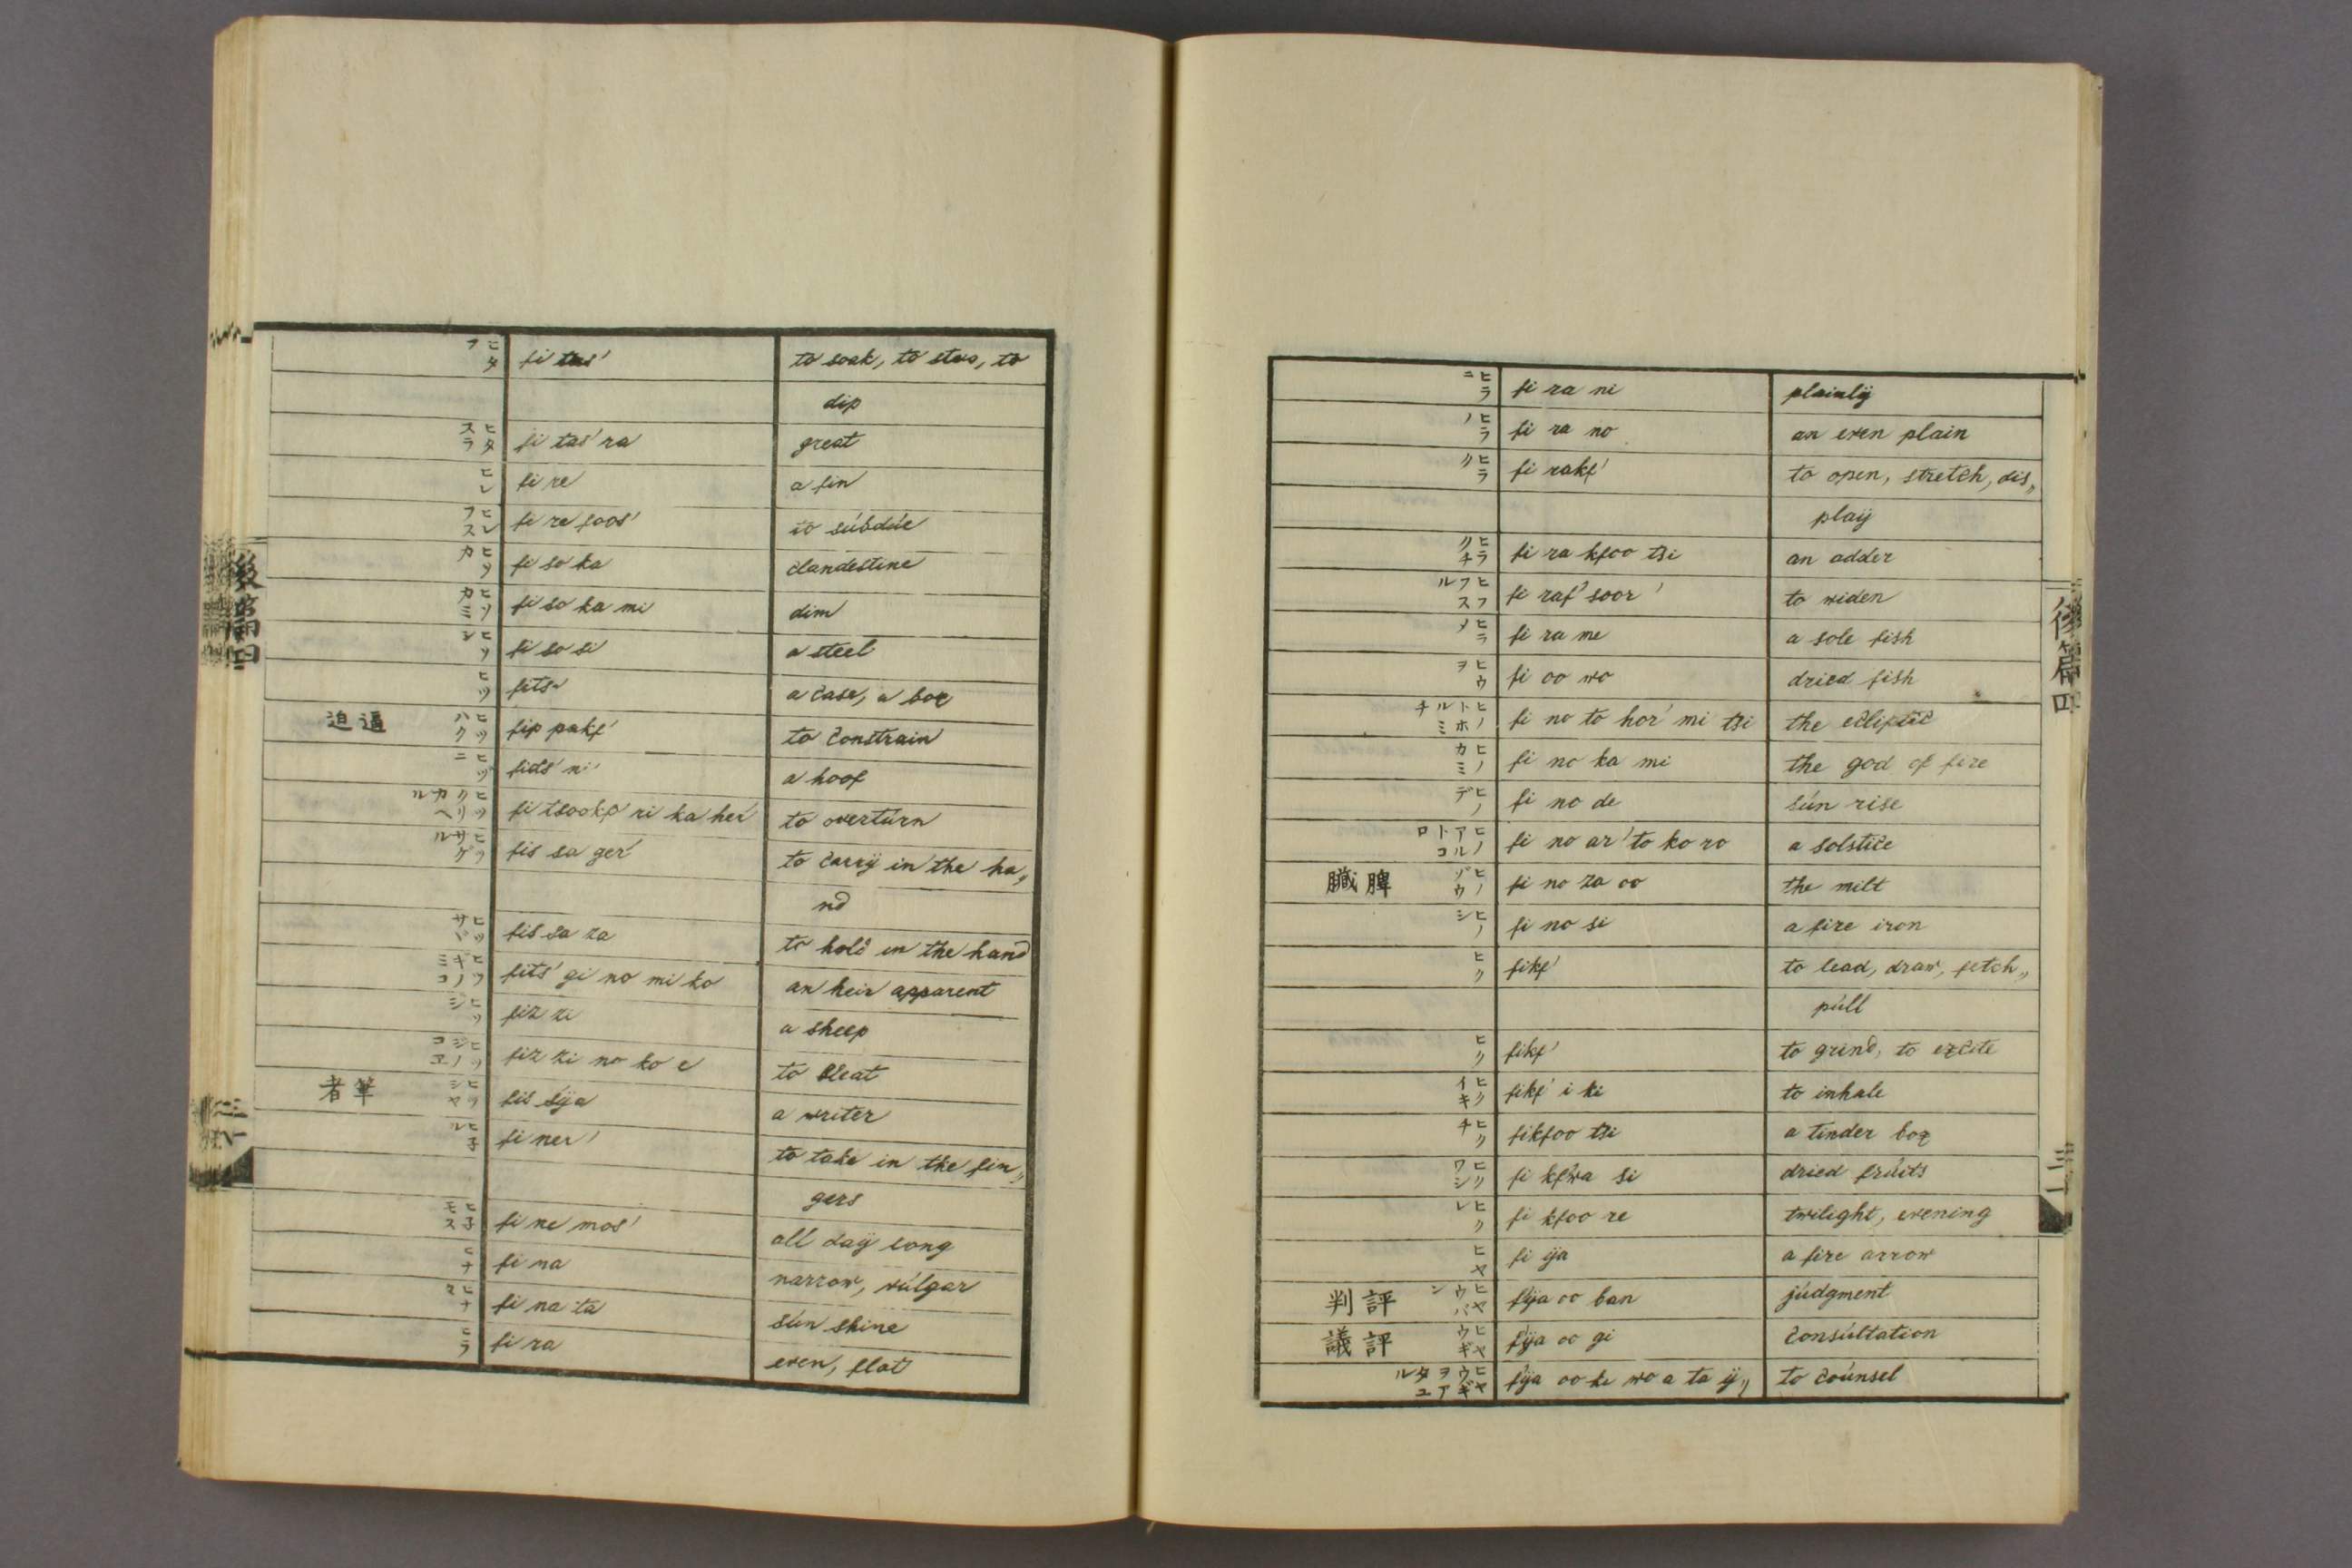 ヒタフ fi tas' to soak, to stew, to
dip
ヒタスラ fi tas' ra great
ヒレ fi re a fin
ヒレフス fi re foos' to súbdúe
ヒソカ fi so ka clandestine
ヒソカミ fi so ka mi dim
ヒソシ fi so si a steel
ヒツ fits' a case, a box
逼迫 ヒツハク fip pakf' to constrain
ヒヅニ fids' ni a hoof
ヒツクリカヘル fi tsookf' ri ka her' to overtúrn
ヒツサゲル fis sa ger' to carrÿ in the ha〃
nd
ヒツサゲ fis sa za to hold in the hand
ヒツギノミコ fits' gi no mi ko an heir apparent
ヒツジ fiz zi a sheep
ヒツジノコヱ fiz zi no ko e to bleat
筆者 ヒツシヤ fis sÿa a writer
ヒ子ル fi ner' to take in the fin〃
gers
ヒ子モス fi ne mos' all daÿ long
ヒナ fi na narrow, vúlgar
ヒナタ fi na ta sún shine
ヒラ fi ra even, flat
ヒラニ fi ra ni plainlÿ
ヒラノ fi ra no an even plain
ヒラク fi rakf' to open, stretch, dis〃
plaÿ
ヒラクチ fi ra kfoo tsi an adder
ヒラフスル fi raf' soor' to widen
ヒラメ fi ra me a sole fish
ヒウヲ fi oo wo dried fish
ヒノトホルミチ fi no to hor' mi tsi the ecliptic
ヒノカミ fi no ka mi the god of fire
ヒノデ fi no de sún rise
ヒノアルトコロ fi no ar' to ko ro a solstice
脾臓 ヒノゾウ fi no za oo the milt
ヒノシ fi no si a fire iron
ヒク fikf' to lead, draw, fetch〃
púll
ヒク fikf' to grind, to excite
ヒクイキ fikf' i ki to inhale
ヒクチ fikfoo tsi a tinder box
ヒクワシ fi kfwa si dried frúits
ヒクレ fi kfoo re twilight, evening
ヒヤ fi ÿa a fire arrow
評判 ヒヤウバン fÿa oo ban júdgment
評議 ヒヤウギ fÿa oo gi consúltation
ヒヤウギヲアタユル fÿa oo ki wo a ta ÿ〃 to coúnsel